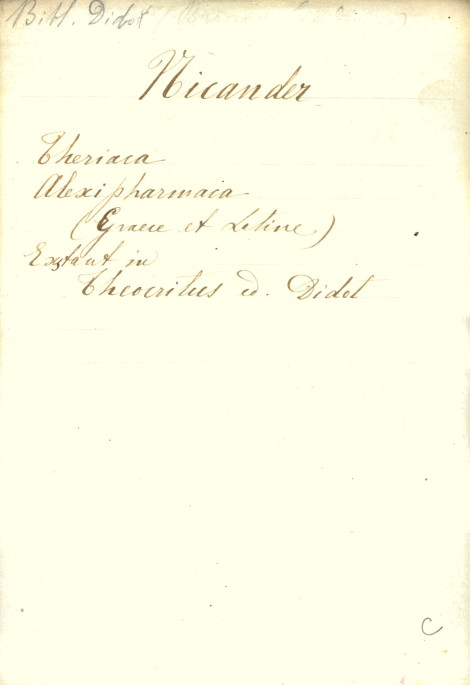 Bibl. Didot
Nicander
Theriaca
Alexipharmaca
(Graece et Latine)
Exstant in
Theocritus ed. Didot
C